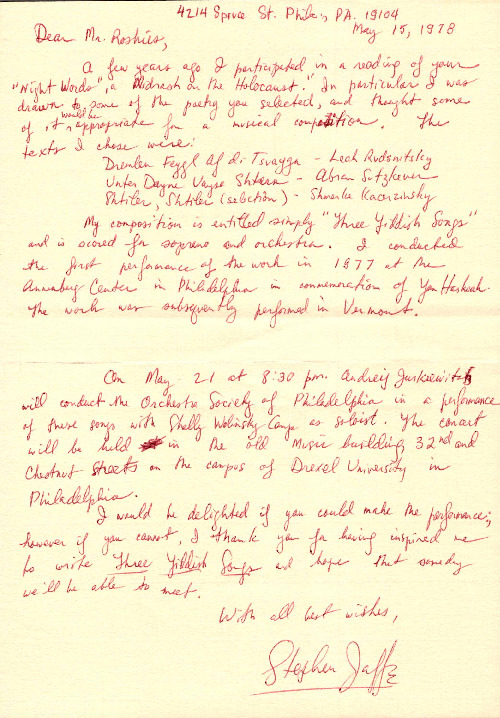 4214 Spruce St. Phila., PA. 19104
May 15, 1978
Dear Mr. Roskies,
A few years ago I participated in a reading of your
"Night Words", a Midrash on the Holocaust." In particular I was
drawn to some of the poetry you selected, and thought some
of it would be appropriate for a musical composition. The
texts I chose were:
Dremlen Feygl Af di Tsvaygn - Leah Rudsnitsky
Unter Dayne Vayse Shtern - Abram Sutzkever
Shtiler, Shtiler (selection) - Shmerke Kaczerzinsky
My composition is entitled simply "Three Yiddish Songs"
and is scored for soprano and orchestra. I conducted
the first performance of the work in 1977 at the
Annenberg Center in Philadelphia in commemoration of Yom Hashoah.
The work was subsequently performed in Vermont.
On May 21 at 8:30 pm. Andreij Jurkiewitsh
will conduct the Orchestra Society of Philadelphia in a performance
of these songs with Shelly Wolinsky Camp as soloist. The concert
will be held in the old Music building 32nd and
Chestnut Streets on the campus of Drexel University in
Philadelphia.
I would be delighted if you could make the performance;
however if you cannot, I thank you for having inspired me
to write Three Yiddish Songs and hope that someday
we'll be able to meet.
With all best wishes,
Stephen Jaffe